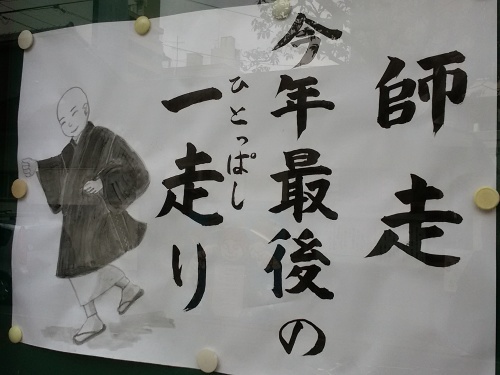 師走
今年最後の
一走り
ひとっぱしり